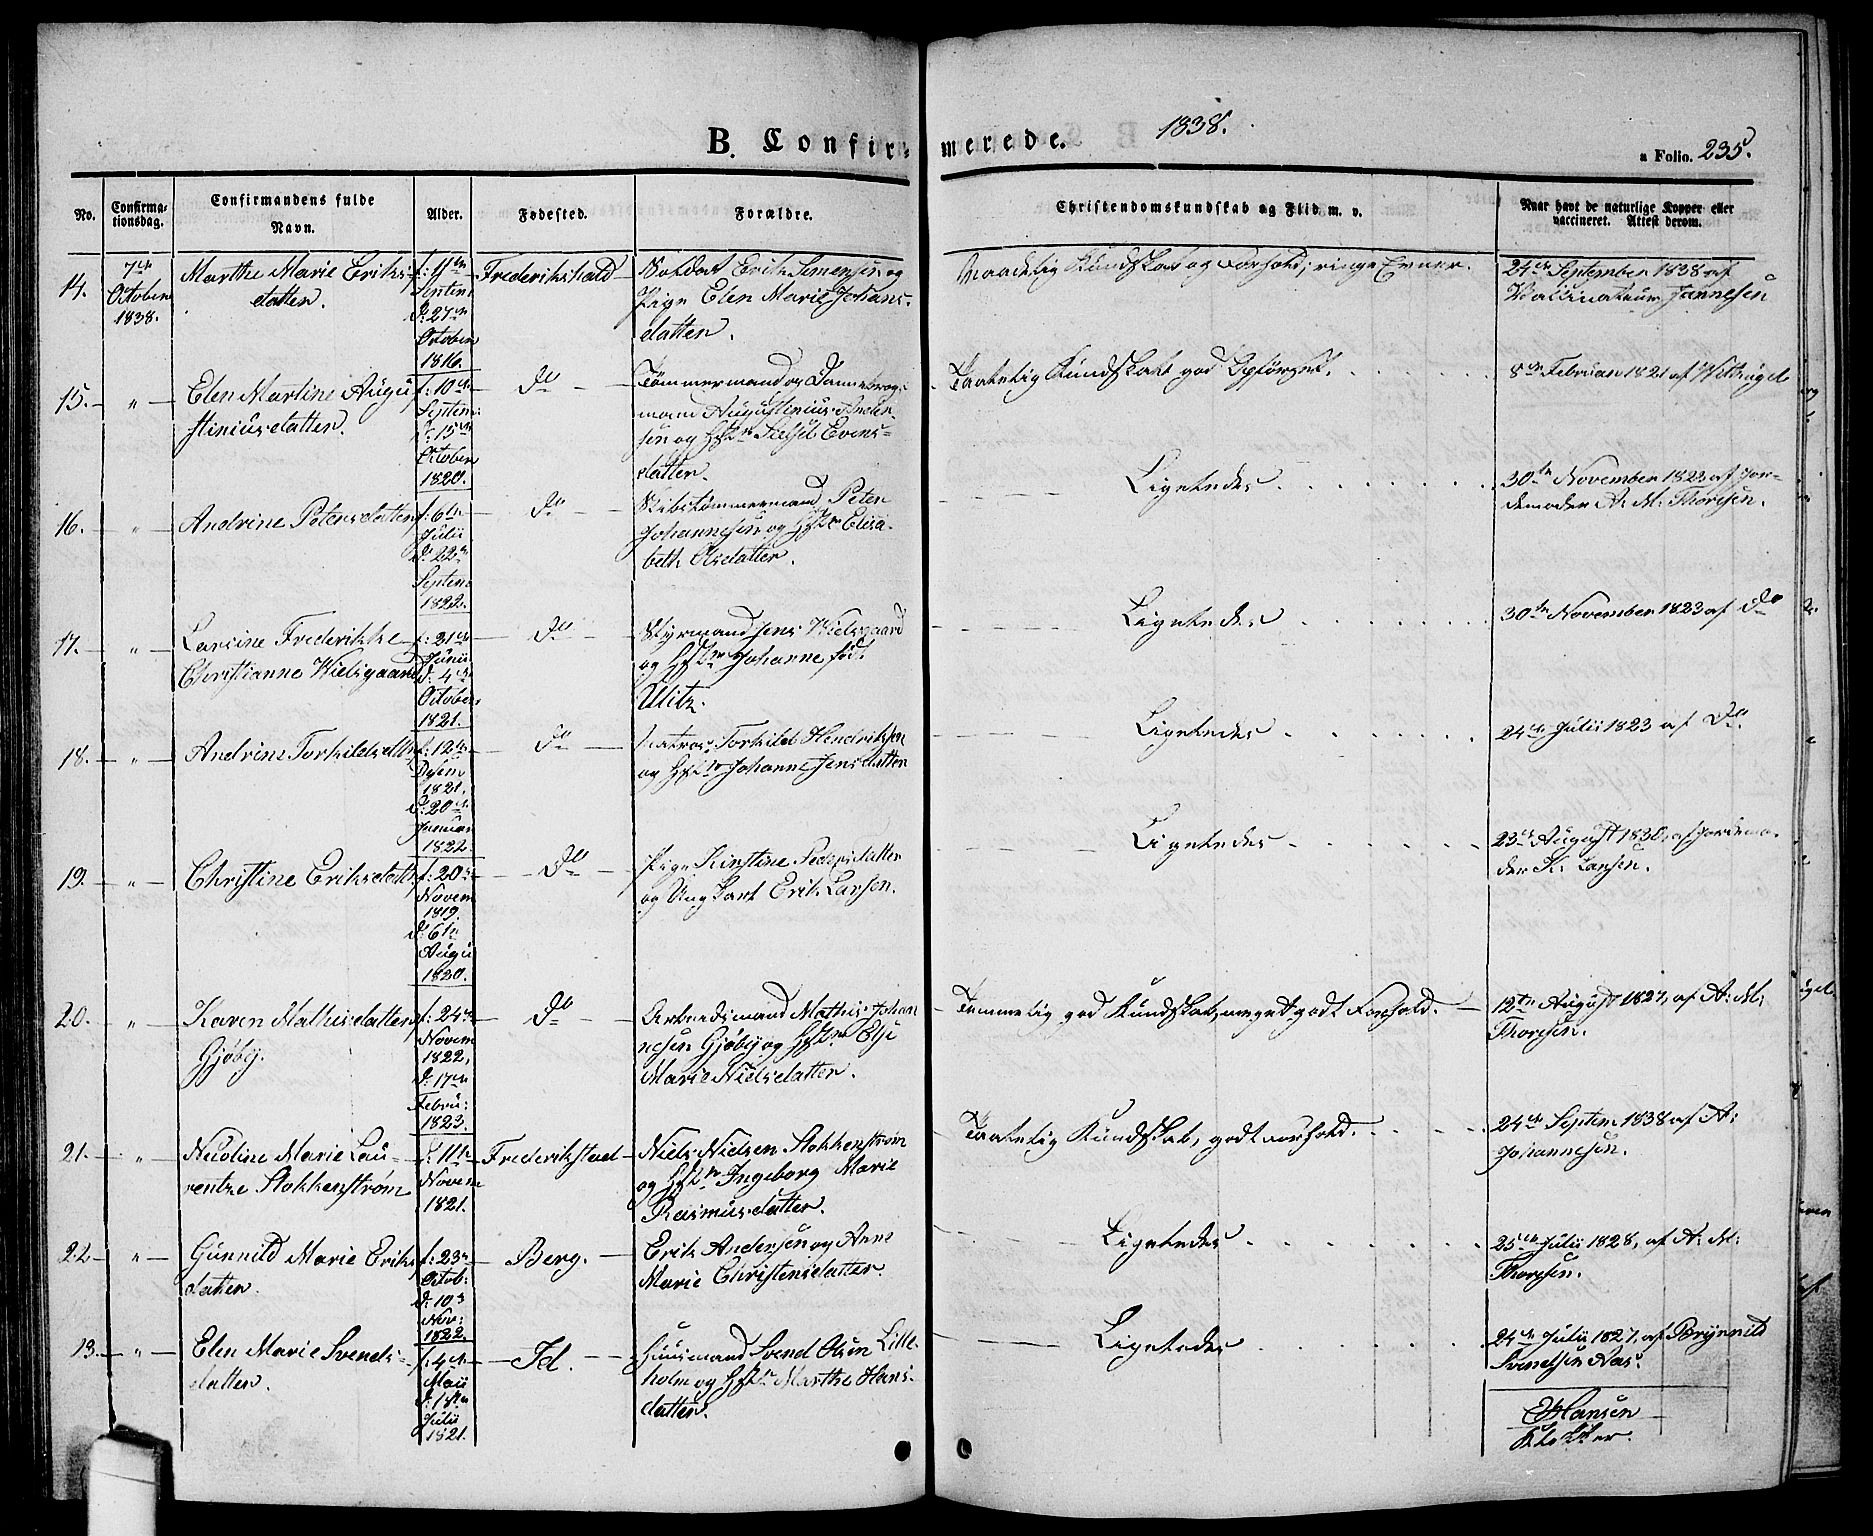 B. Confir-
merede.
1838.
a Folio. 235.
No.
Confirma-
tionsdag.
Confirmandens fulde
Navn.
Alder.
Fødested.
Forældre.
Christendomskundskab og Flid m. v.
Naar havt de naturlige Kopper eller
vaccineret. Attest derom.
14.
7de
October
1838.
Marthe Marie Eriks-
datter.
f: 11te
Septem
d: 27de
October
1816.
Frederikshald
Soldat Erik Simensen og
Pige Elen Marie Johans-
datter.
Maadelig Kundskab og Forhold; ringe Evner.
24de September 1838 af
Vaccinateur Jannesen
15.
"
Elen Martine Augu
stiniusdatter.
f: 10de
Septem:
d: 15de
October
1820.
Do
Tømmermand og Dannebrogs-
mand Augustinius Ander-
sen og Hstr Sidsel Evens-
datter.
Taalelig Kundskab god Opførsel.
8de Februar 1821 af Wittrugel
16.
"
Andrine Petersdatter
f: 6te
Julii
d: 22de
Septem
1822.
Do
Skibstømmermand Peter
Johannesen og Hstr Elisa-
beth Olsdatter.
Ligeledes
30te November 1823 af Jor-
demoder A. M. Thoresen.
17.
"
Larsine Frederikke
Christianne Wielsgaard
f: 21de
Junii
d: 4de
October
1821.
Do
Styrmand Jens Wielsgaard
og Hstr Johanne født
Ulitz.
Ligeledes
30te November 1823 af Do
18.
"
Andrine Torkildsdatter
f: 12te
Desem
1821.
d: 20de
Januar
1822
Do
Matros Torkild Hendriksen
og Hstr Johanne Jensdatter
Ligeledes
24de Julii 1823 af Do.
19.
"
Christine Eriksdatter
f: 20de
Novem
1819.
d: 6te
Augu
1820.
Do
Pige Kirstine Pedersdatter
og Ungkarl Erik Larsen.
Ligeledes
23de August 1830, af Jordemo-
der K. Larsen.
20.
"
Karen Mathisdatter
Gjøby.
f: 24de
Novem
1822,
d: 17de
Febru:
1823.
Do
Arbeidsmand Mathis Johan
nesen Gjøby og Hstr Else
Marie Nielsdatter.
Temmelig god Kundskab, meget godt Forhold.
12te August 1827, af A: M:
Thoresen.
21.
"
Nicoline Marie Lau-
rentze Stokkenstrøm
f: 11te
Novem
1821.
Frederikstad
Niels Nielsen Stokkenstrøm
og Hstr Ingeborg Marie
Rasmusdatter.
Taalelig Kundskab, godt Forhold.
24de Septem 1838 af A:
Johannesen.
22
"
Gunnild Marie Eriks
datter.
f: 23de
Octob:
d: 10de
Nov:
1822.
Berg.
Erik Andersen og Anne
Marie Christensdatter.
Ligeledes
25de Julii 1828, af A: M:
Thoresen.
13.
"
Elen Marie Svends-
datter.
f: 4de
Maii
d: 1ste
Julii
1821.
Id.
Huusmand Svend Olsen Lille-
holm og Hstr Marthe Hans-
datter.
Ligeledes
24de Julii 1827, af Brynnild
Svendsen Næs.
E Hansen
Klokker.